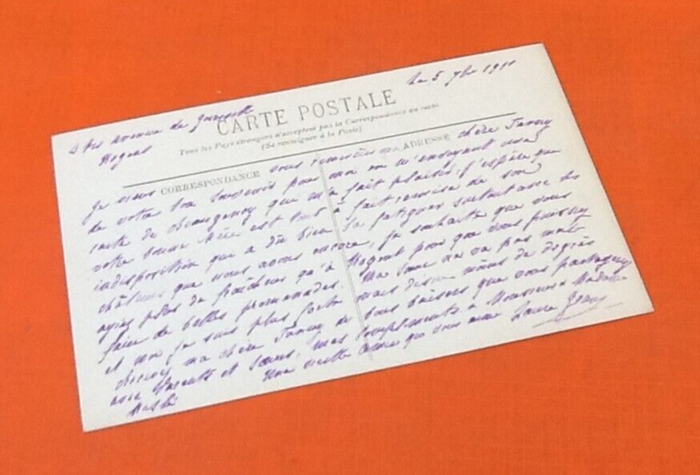 4 bis avenue de
Nogent
le 5 7bre 1911
CARTE POSTALE
Tous les Pays étrangers n'acceptent pas la Correspondance au recto
(Se renseigner à la Poste)
CORRESPONDANCE
ADRESSE
Je vous vous remercie ma chère Fanny
de votre bon souvenir pour moi en m'envoyant une
carte de qui m'a fait plaisir, j'espère que
votre bonne Mère est tout à fait remise de son
indisposition que a dû bien la fatiguer surtout avec les
chaleurs que nous avons encore, je souhaite que vous
ayiez plus de fraîcheur qu'à Nogent pour que vous puissiez
faire de belles promenades. Ma sœur ne va pas mal
et moi je suis plus forte mais
ma chère Fanny de bons baisers que vous partagerez
avec et sœurs, mes compliments à Monsieur & Madame
Une vieille amie qui vous aime Laure